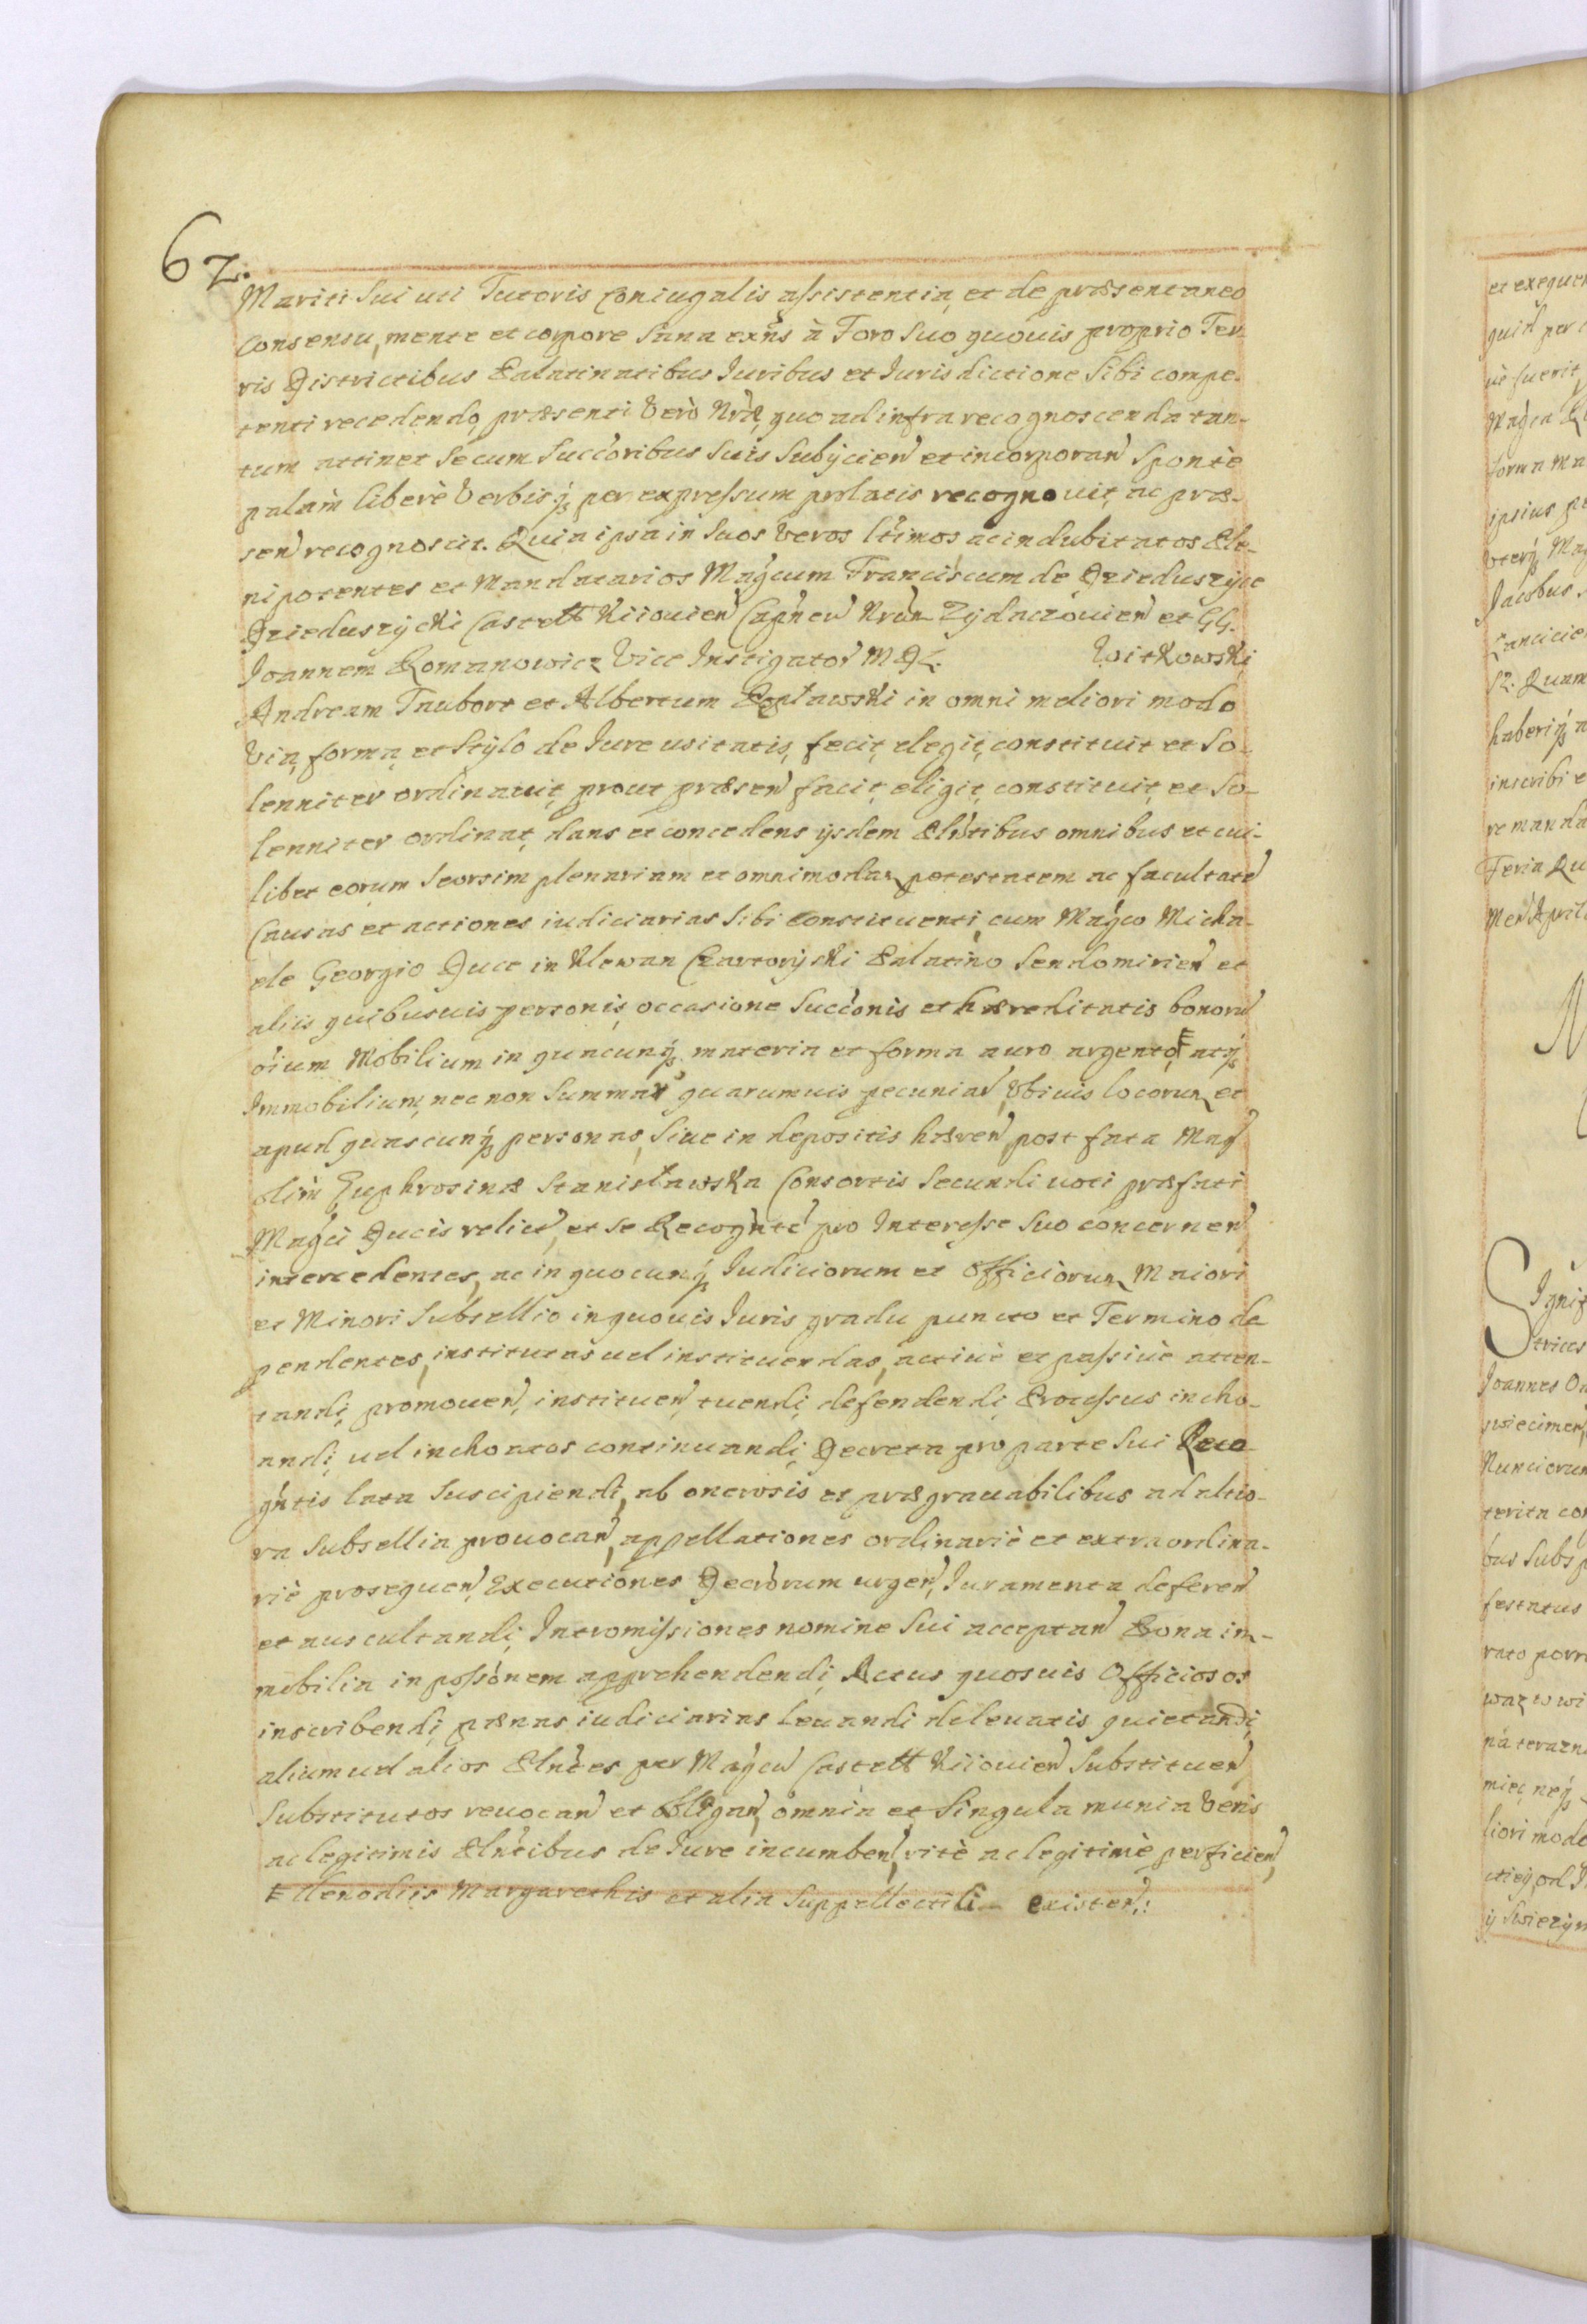 62.
Mariti Sui uti Tutoris Coniugalis assistentia, et de præsentaneo
consensu, mente et corpore Sana exñs à Foro Suo quovis proprio Ter-
ris Districtibus Palatinatibus Iuribus et Iurisdictione Sibi compe-
tenti recedendo, præsenti verò Nræ, quo ad infra recognoscenda tan-
tum attinet Secum Succoribus Suis Subijcień et incorporań Spontè
palàm liberè Verbisq; per expressum prolatis recognouit, ac præ-
sen̄ recognoscit. Quia ipsa in Suos veros ltimos ac indubitatos Ple-
nipotentes et Mandatarios Magcum Franciscum de Dzieduszyce
Dziedusżycki Castell Kiiouień Capneū Nrūm Zydaczouień et GG.
Ioannem Romanowicz Vice Instigator M D L. Woitkowski
Andream Taubort et Albertum Popławski in omni meliori modo
via, forma, et Stylo de Iure usitatis, fecit, elegit, constituit et So-
lenniter ordinauit, prout præsen̄ facit, eligit, constituit, et So-
lenniter ordinat, dans et concedens ijsdem Plntibus omnibus et cui-
libet eorum Seorsim plenariam et omnimodam potestatem ac facultatē
Causas et actiones iudiciarias Sibi constituenti, cum Magco Micha-
ele Georgio Duce in Klewan Czartoryski Palatino Sendomirień et
aliis quibusuis personis, occasione Succonis et hæreditatis bonorū
oium Mobilium in quacunq; materia et forma auro argento, F atq;
Immobilium, nec non Summar quarumuis pecuniar, Vbiuis locorum, et
apud quascunq; personas, Siue in depositis hæreń, post fata Mag
olim Euphrosinæ Stanisławska Consortis Secundi uoti præfati
Magci Ducis relict, et se Recogntē pro Interesse Suo concerneń
intercedentes, ac in quocunq; Iudiciorum et Officiorum, Maiori
et Minori Subsellio in quouis Iuris gradu puncto et Termino de
pendentes, institutas uel instituendas, actiuè et passiuè atten-
tandi, promoueń, instituen̄, tuendi, defendendi, Processus incho-
andi, uel inchoatos continuandi, Decreta pro parte Sui Reco-
gntis lata Suscipiendi, ab onerosis et prægrauabilibus ad altio-
ra Subsellia prouocań, appellationes ordinariè et extraordina-
riè prosequeń, Executiones Decrorum urgeń, Iuramenta defereń
et auscultandi, Intromissiones nomine Sui acceptań Bona im-
mobilia in possonem apprehendendi, Actus quosuis Officiosos
inscribendi, pænas iudiciarias leuandi de leuatis quietandi,
alium uel alios Plntes per Magcū Castell Kiiouień Substitueń
Substitutos reuocań et obligań, omnia et Singula munia Veris
ac legitimis Plntibus de Iure incumbeń, ritè ac legitimè perficień,
F Clenodiis Margarethis et alia Suppellectili existeń.: